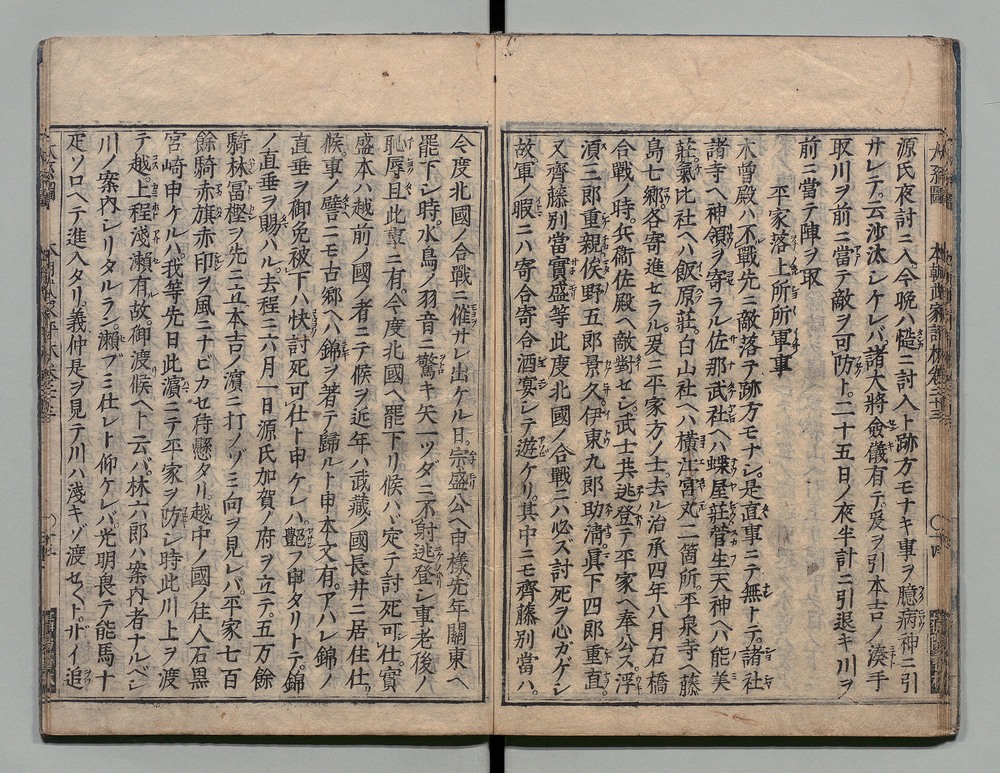 源氏夜討ニ入今晩ハ槌ニ討入ト跡方モナキ事ヲ臆病神ニ引
サレテ云沙汰シケレバ諸大將僉儀有テ爰ヲ引本吉ノ湊手
取川ヲ前ニ當テ敵ヲ可防ト二十五日ノ夜半計ニ引退キ川ヲ
前ニ當テ陣ヲ取
平家落上所所軍事
木曽殿ハ不戰先ニ敵落テ跡方モナシ是直事ニテ無トテ諸社
諸寺ヘ神領ヲ寄ラル佐那武社ヘハ蝶屋莊菅生天神ヘハ能美
莊氣比社ヘハ飯原莊白山社ヘハ横江宮丸二箇所平泉寺ヘ藤
島七郷各寄進セラル爰ニ平家方ノ士去ル治承四年八月石橋
合戰ノ時兵衞佐殿ヘ敵對セシ武士共逃登テ平家ヘ奉公ス浮
須二郎重親俟野五郎景久伊東九郎助淸眞下四郎重直
又齊藤別當實盛等此度北國ノ合戰ニハ必ス討死ヲ心ガゲシ
故軍ノ暇ニハ寄合寄合酒宴シテ遊ケリ其中ニモ齊藤別當ハ
今度北國ノ合戰ニ催サレ出ケル日宗盛公ヘ申樣先年關東ヘ
罷下シ時水鳥ノ羽音ニ驚キ矢一ツダニ不射逃登シ事老後ノ
恥辱且此事ニ有今度北國ヘ罷下リ候ハヾ定テ討死可仕實
盛本ハ越前ノ國ノ者ニテ候ヲ近年ハ武藏ノ國長井ニ居住仕
候事ノ譬ニモ古郷ヘハ錦ヲ著テ歸ルト申本文有アハレ錦ノ
直垂ヲ御免被下ハ快討死可仕ト申ケレハ詔フ申タリトテ錦
ノ直垂ヲ賜ハル去程ニ六月一日源氏加賀ノ府ヲ立テ五万餘
騎林冨樫ヲ先ニ立本吉ノ濱ニ打ノゾミ向ヲ見レバ平家七百
餘騎赤旗赤印ヲ風ニナビカセ待懸タリ越中ノ國ノ住人石黒
宮崎申ケルハ我等先日此濱ニテ平家ヲ防シ時此川上ヲ渡
テ越上程淺瀬有故御渡候ヘト云バ林六郎ハ案内者ナルベシ
川ノ案内シリタルラン瀬ブミ仕レト仰ケレバ光明良テ能馬十
疋ソロヘテ進入タリ義仲是ヲ見テ川ハ淺キゾ渡セ〱トザイ追